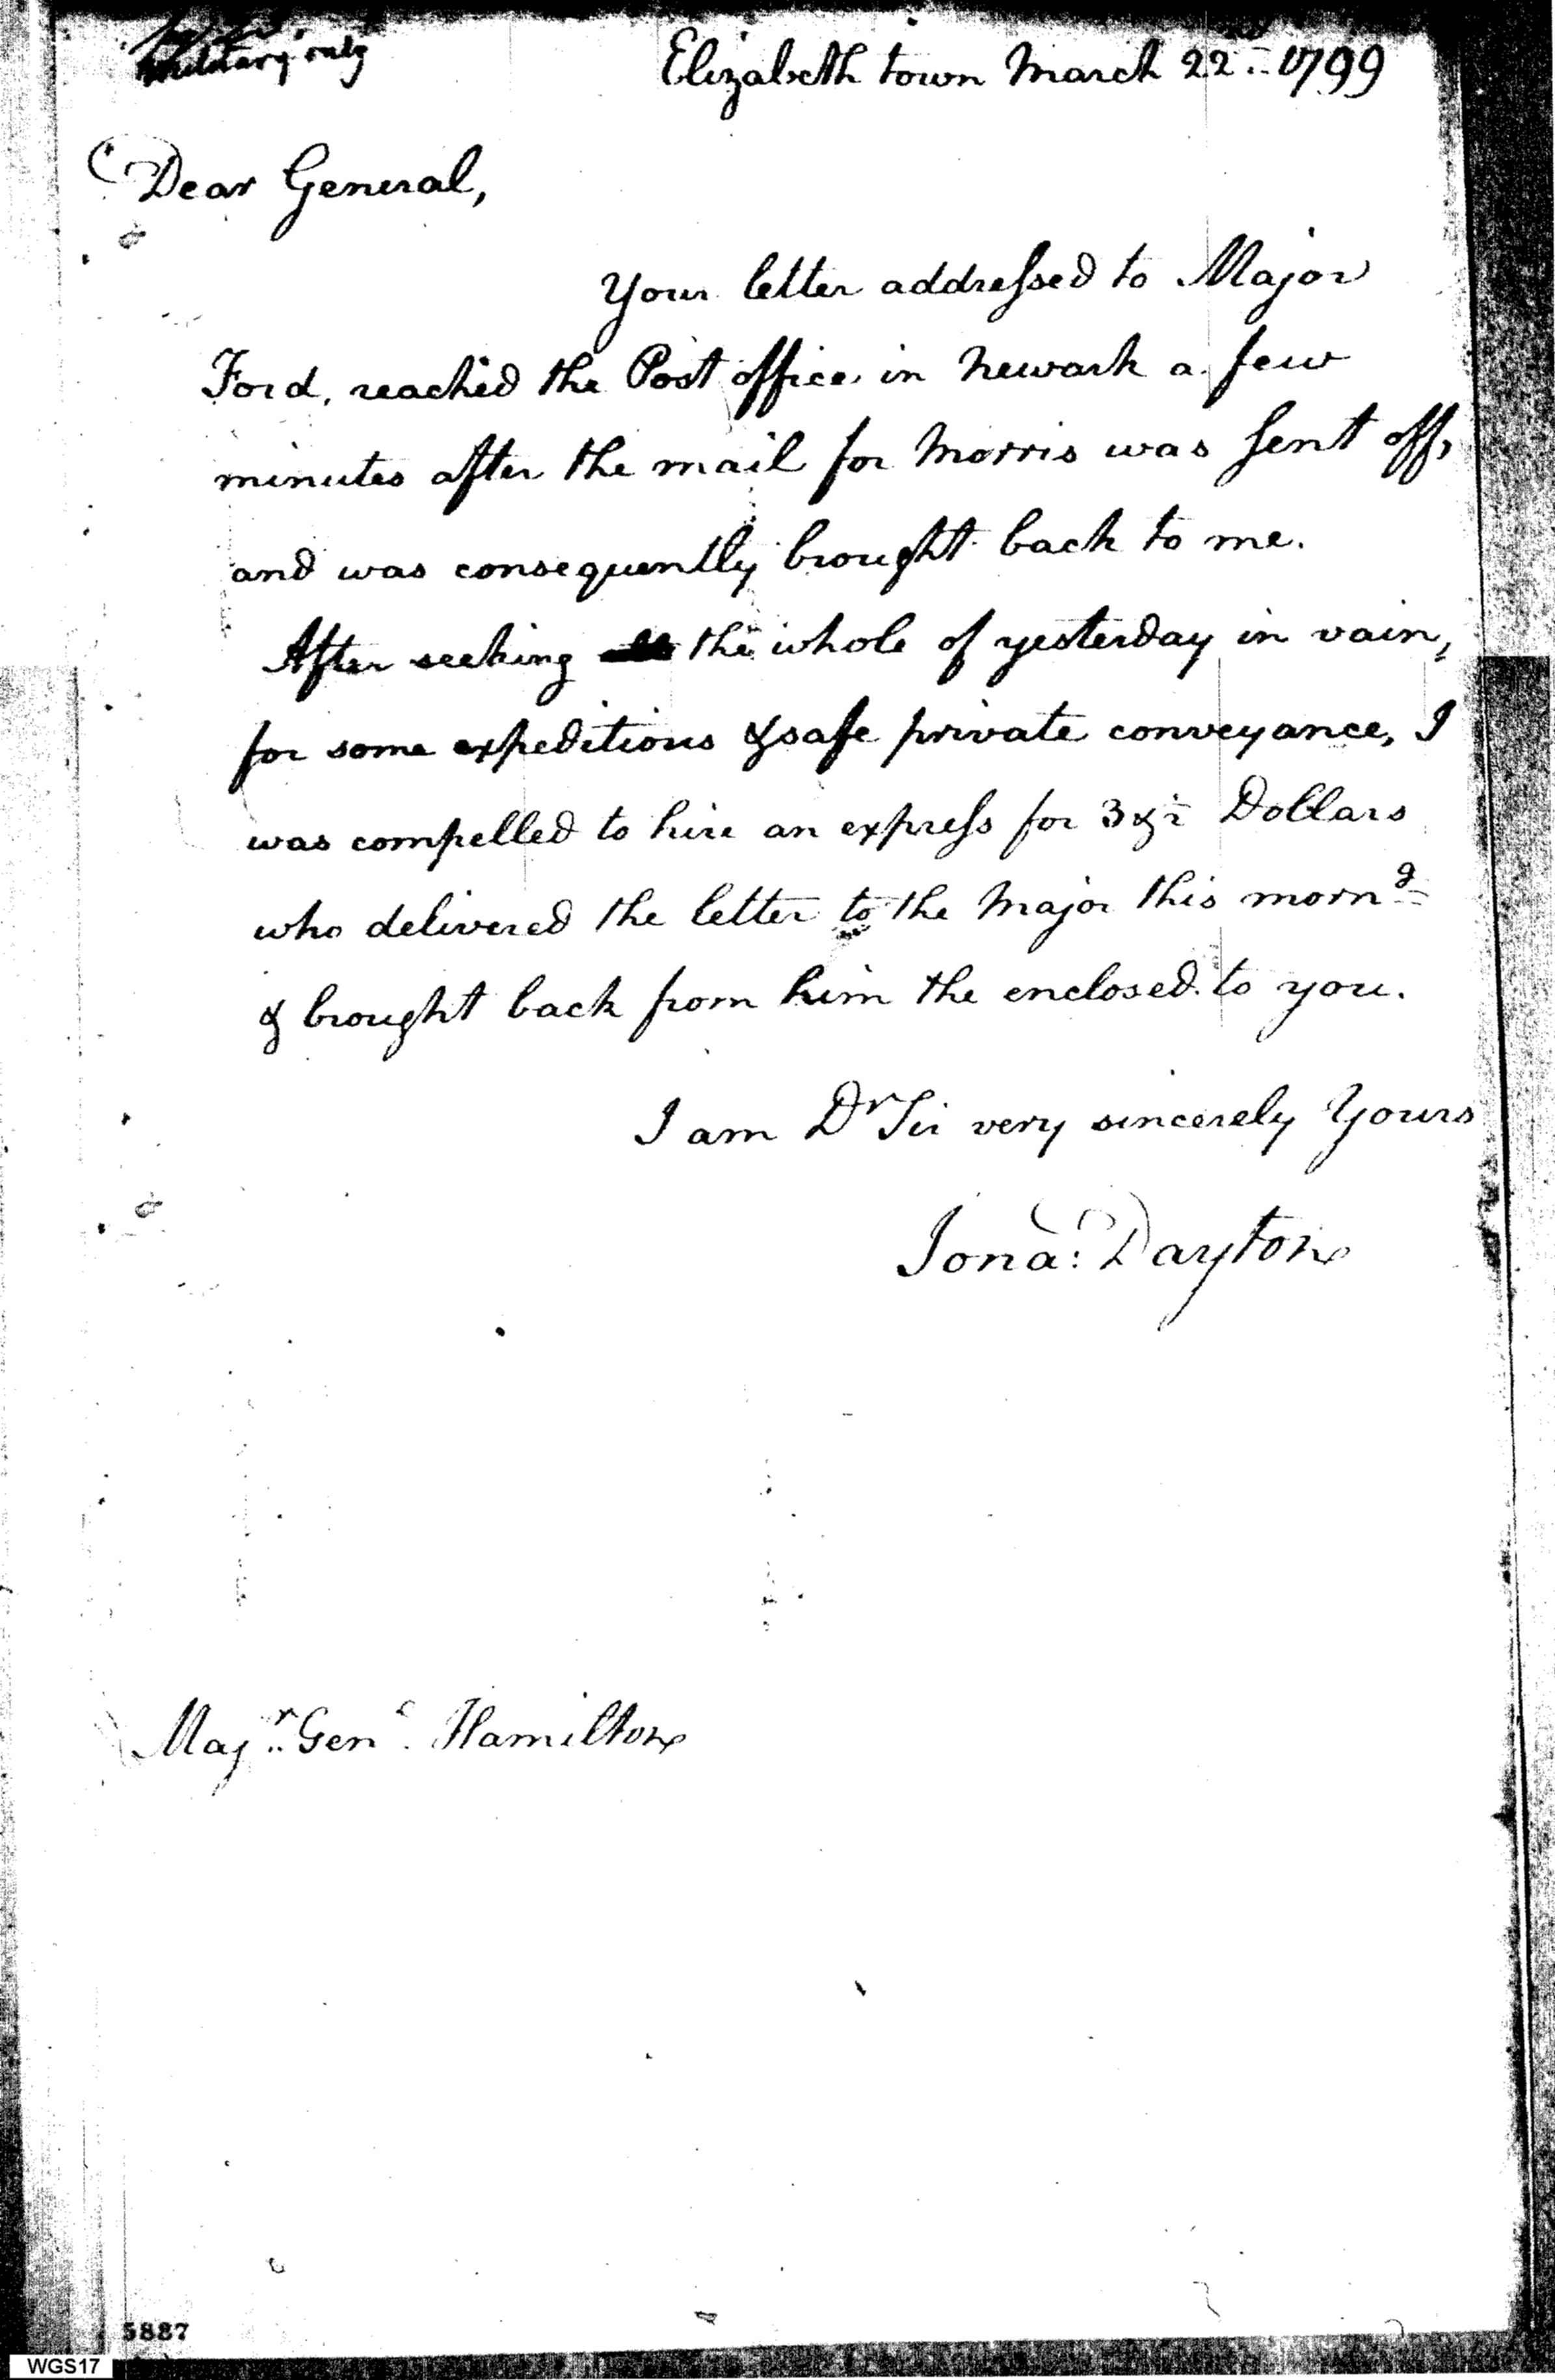 Military only
Elizabeth town March 22. 1799
Dear General,
Your letter addressed to Major
Ford, reached the Post office in Newark a few
minutes after the mail for Morris was sent off,
and was consequently brought back to me.
After seeking the whole of yesterday in vain,
for some expeditious & safe private conveyance, I
was compelled to hire an express for 3 & ½ Dollars
who delivered the letter to the Major this morng
& brought back from him the enclosed to you.
I am Dr Sir very sincerely Yours
Jona: Dayton
Majr. Genl. Hamilton
5887
WGS17